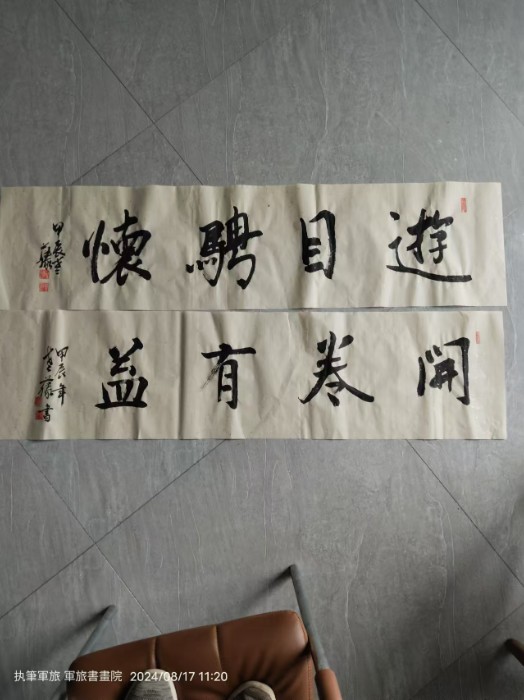 遊目騁懷
甲辰年
開卷有益
甲辰年
書
执筆軍旅 軍旅書畫院 2024/08/17 11:20